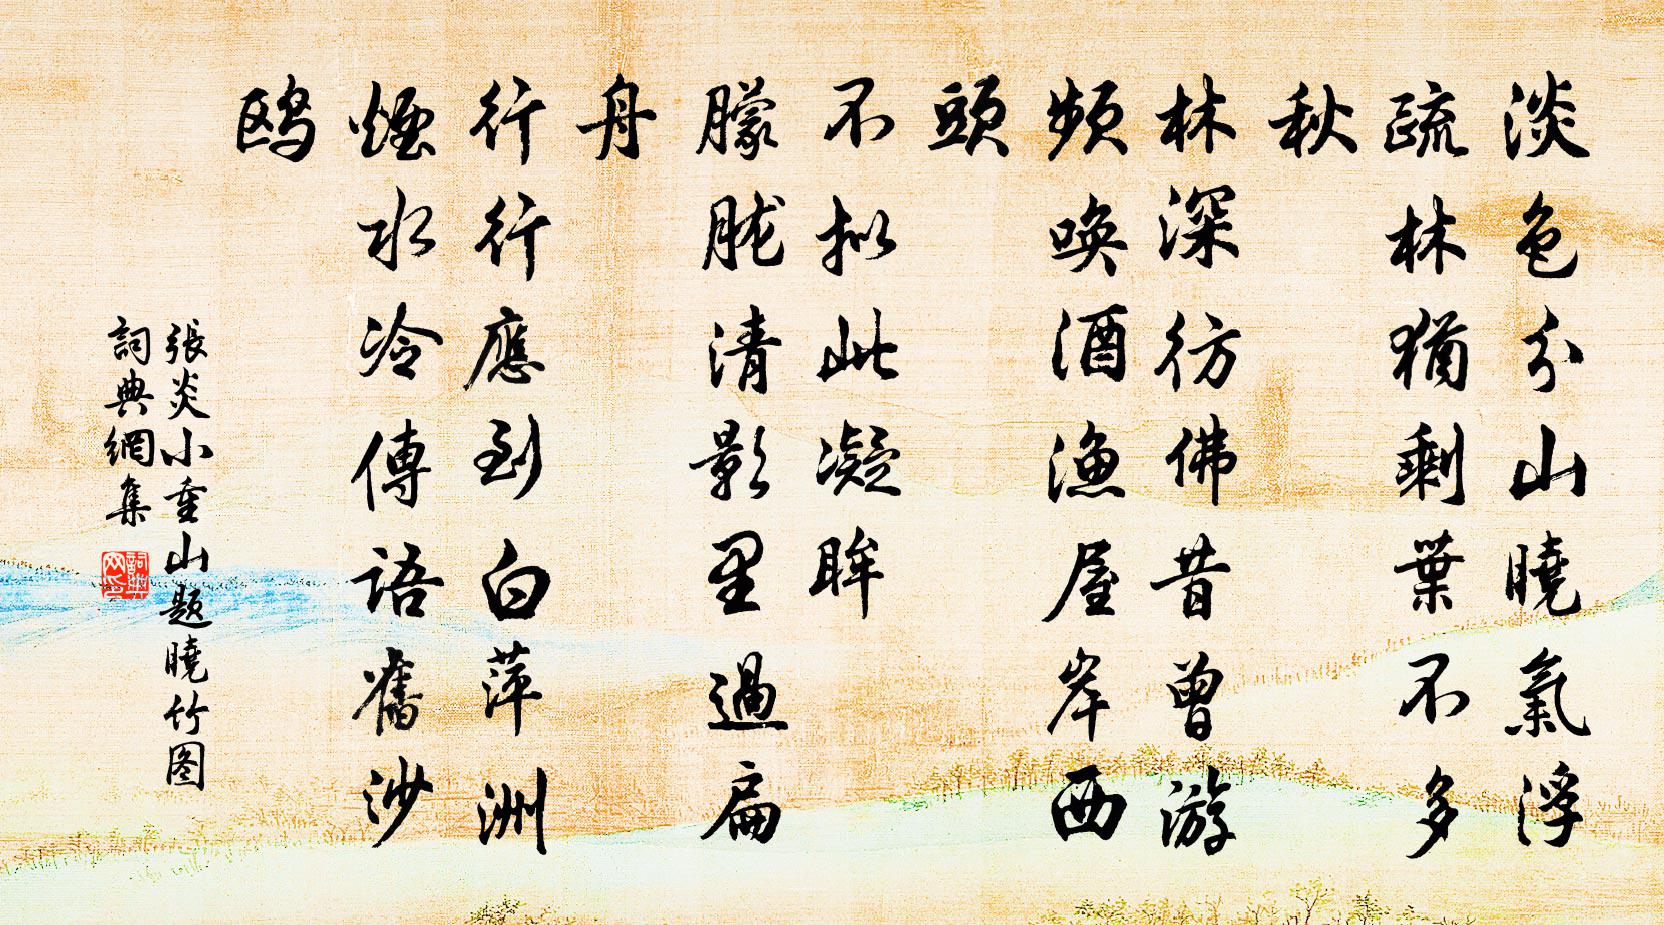 淡色分山曉氣浮
疏林猶剩葉不多
秋
林深彷佛昔曾游
頻喚酒漁屋岸西
頭
不拟此凝眸
朦胧清影里過扁
舟
行行應到白萍洲
煙水冷傳語舊沙
鸥
張炎小重山题曉竹图
詞典網集